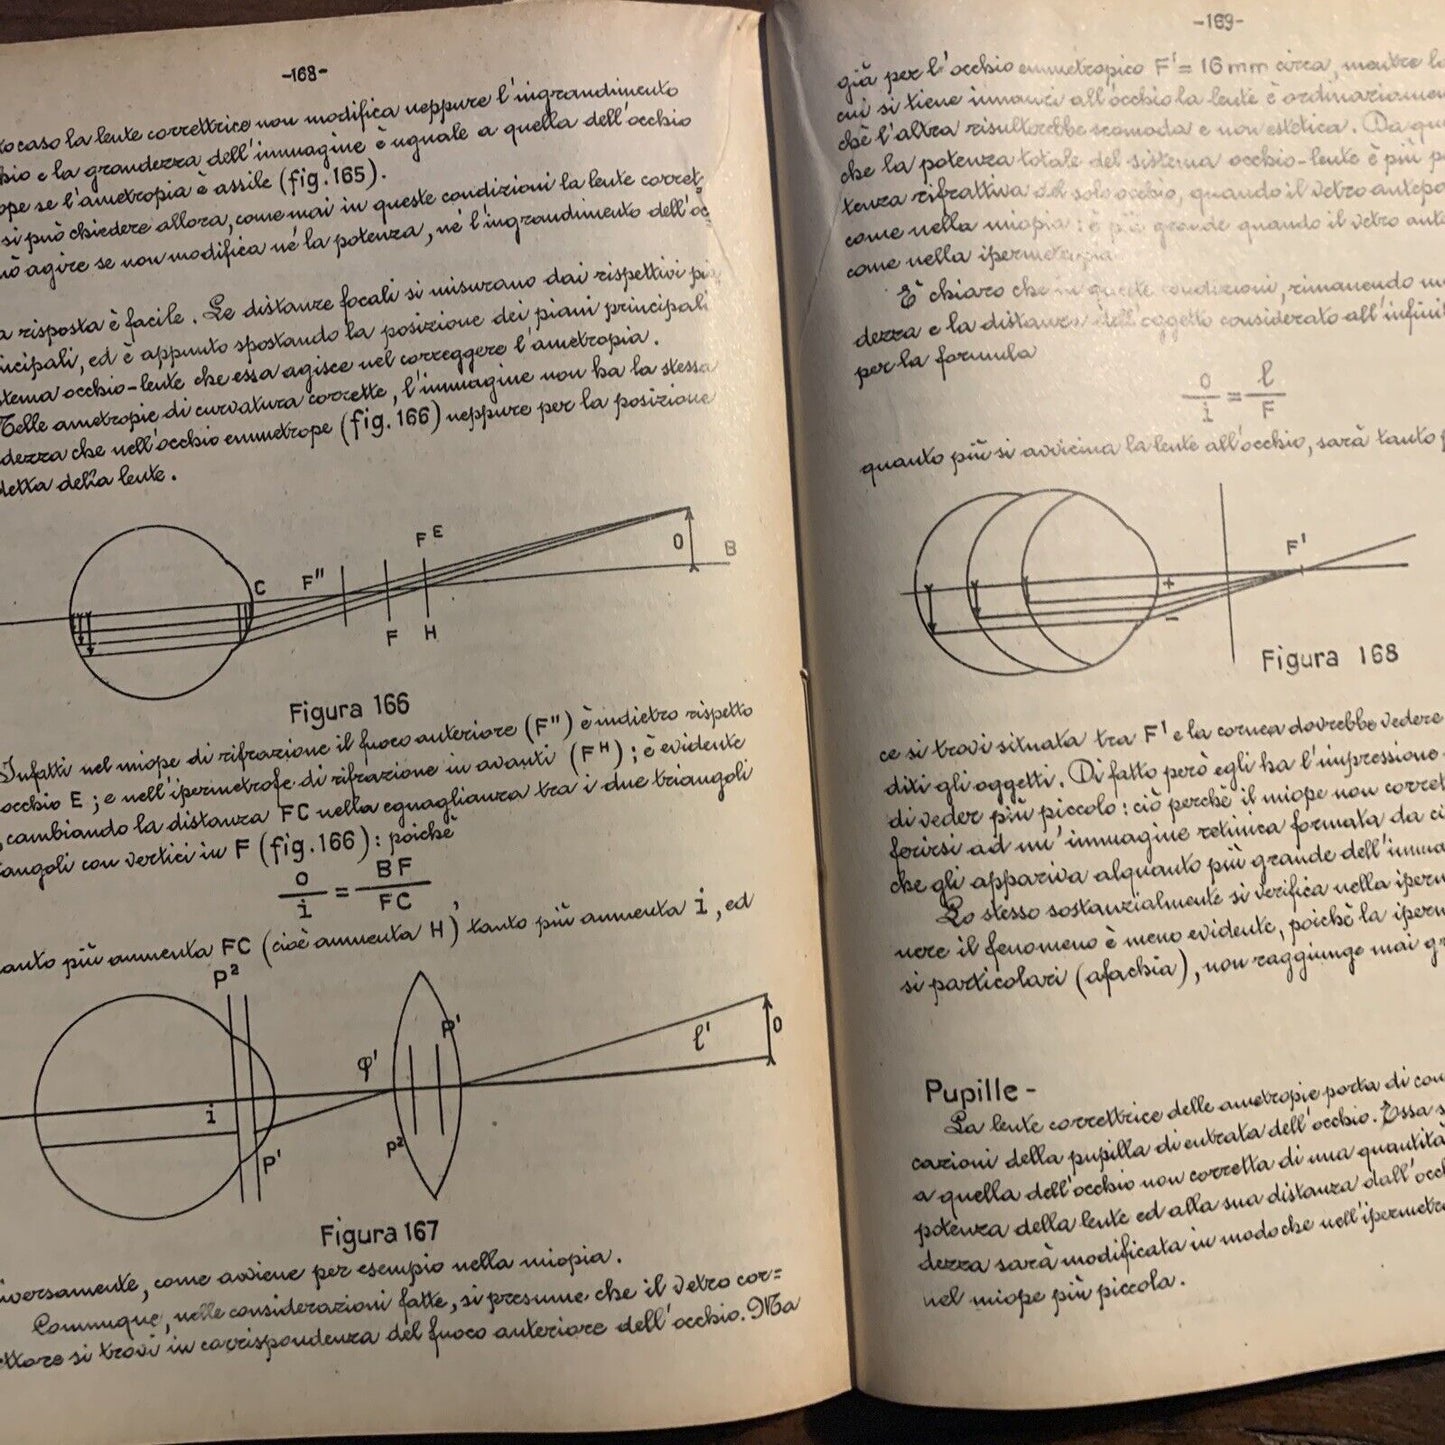 -168-
caso la lente correttrice non modifica neppure l'ingrandimento
e la grandezza dell'immagine è uguale a quella dell'occhio
se l'ametropia è assile (fig. 165).
si può chiedere allora, come mai in queste condizioni la lente corret
agire se non modifica né la potenza, né l'ingrandimento dell'oc
risposta è facile. Le distanze focali si misurano dai rispettivi
ed è appunto spostando la posizione dei piani principali
occhio-lente che essa agisce nel correggere l'ametropia.
Nelle ametropie di curvatura corrette, l'immagine non ha la stessa
che nell'occhio emmetrope (fig. 166) neppure per la posizione
detta della lente.
C F" F E F H O B
Figura 166
Infatti nel miope di rifrazione il fuoco anteriore (F") è indietro rispetto
occhio E; e nell'ipermetrofe di rifrazione in avanti (FH); è evidente
, cambiando la distanza FC nella eguaglianza tra i due triangoli
con vertici in F (fig. 166): poiché
o/i = BF/FC ,
più aumenta FC (cioè aumenta H) tanto più aumenta i, ed
P² i P' φ' P² P' l' O
Figura 167
come avviene per esempio nella miopia.
Comunque, nelle considerazioni fatte, si presume che il vetro cor=
si trovi in corrispondenza del fuoco anteriore dell'occhio. Ma
-169-
già per l'occhio emmetropico F' = 16 mm circa, mentre la
cui si tiene innanzi all'occhio la lente è
chè l'altra risulterebbe scomoda e non estetica. Da
che la potenza totale del sistema occhio-lente è più
rifrattiva del solo occhio, quando il vetro
come nella miopia: è più grande quando il vetro
come nella ipermetropia
È chiaro che in queste condizioni, rimanendo
dezza e la distanza dell'oggetto considerato
per la formula
o/i = l/F
quanto più si avvicina la lente all'occhio, sarà tanto
+ - F'
Figura 168
ce si trovi situata tra F' e la cornea dovrebbe vedere
diti gli oggetti. Di fatto però egli ha l'impressione
di veder più piccolo: ciò perchè il miope non
forirsi ad un'immagine retinica formata da
che gli appariva alquanto più grande
Lo stesso sostanzialmente si verifica nella
nere il fenomeno è meno evidente, poichè la
si particolari (afachia), non raggiunge mai
Pupille -
La lente correttrice delle ametropie porta di
cazioni della pupilla di entrata dell'occhio. Essa
a quella dell'occhio non corretta di una quantità
potenza della lente ed alla sua distanza
dezza sarà modificata in modo che
nel miope più piccola.